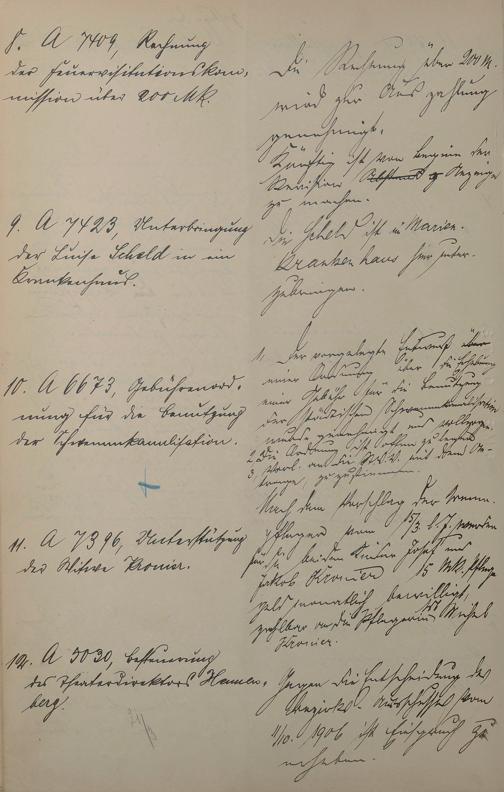 8. A 7409, Rechnung
der Feuervisitationskom-
mission über 200 Mk.
Die Rechnung über 200 M.
wird zur Auszahlung
genehmigt.
Künftig ist von Beginn der
Revision Anzeige
zu machen.
9. A 7423, Unterbringung
der Luise Scheld in ein
Krankenhaus.
Die Scheld ist in Marien-
krankenhaus hier unter-
zubringen.
10. A 6673, Gebührenord-
nung für die Benutzung
der Schwemmkanalisation.
1. Der vorgelegte Entwurf
einer Ordnung über die Erhebung
einer Gebühr für die Benutzung
der städtischen Schwemmkanalisation
wird genehmigt und vollzogen.
2. Die Ordnung ist offen zu legen
3. Vorl. an die St.V.V. mit dem An-
trage, zuzustimmen.
11. A 7396, Unterstützung
der Witwe Kronier.
Nach dem Vorschlag der Armen-
pfleger vom 15/3 d. J. werden
für die beiden Kinder Josef und
Jakob Kronier 15 Mk. Pflege-
geld monatlich bewilligt,
zahlbar an die Pflegerin
Kronier.
12. A 5030, Besteuerung
des Theaterdirektors
berg.
Gegen die Entscheidung des
Bezirks-Ausschusses vom
11/10. 1906 ist Einspruch zu
erheben.